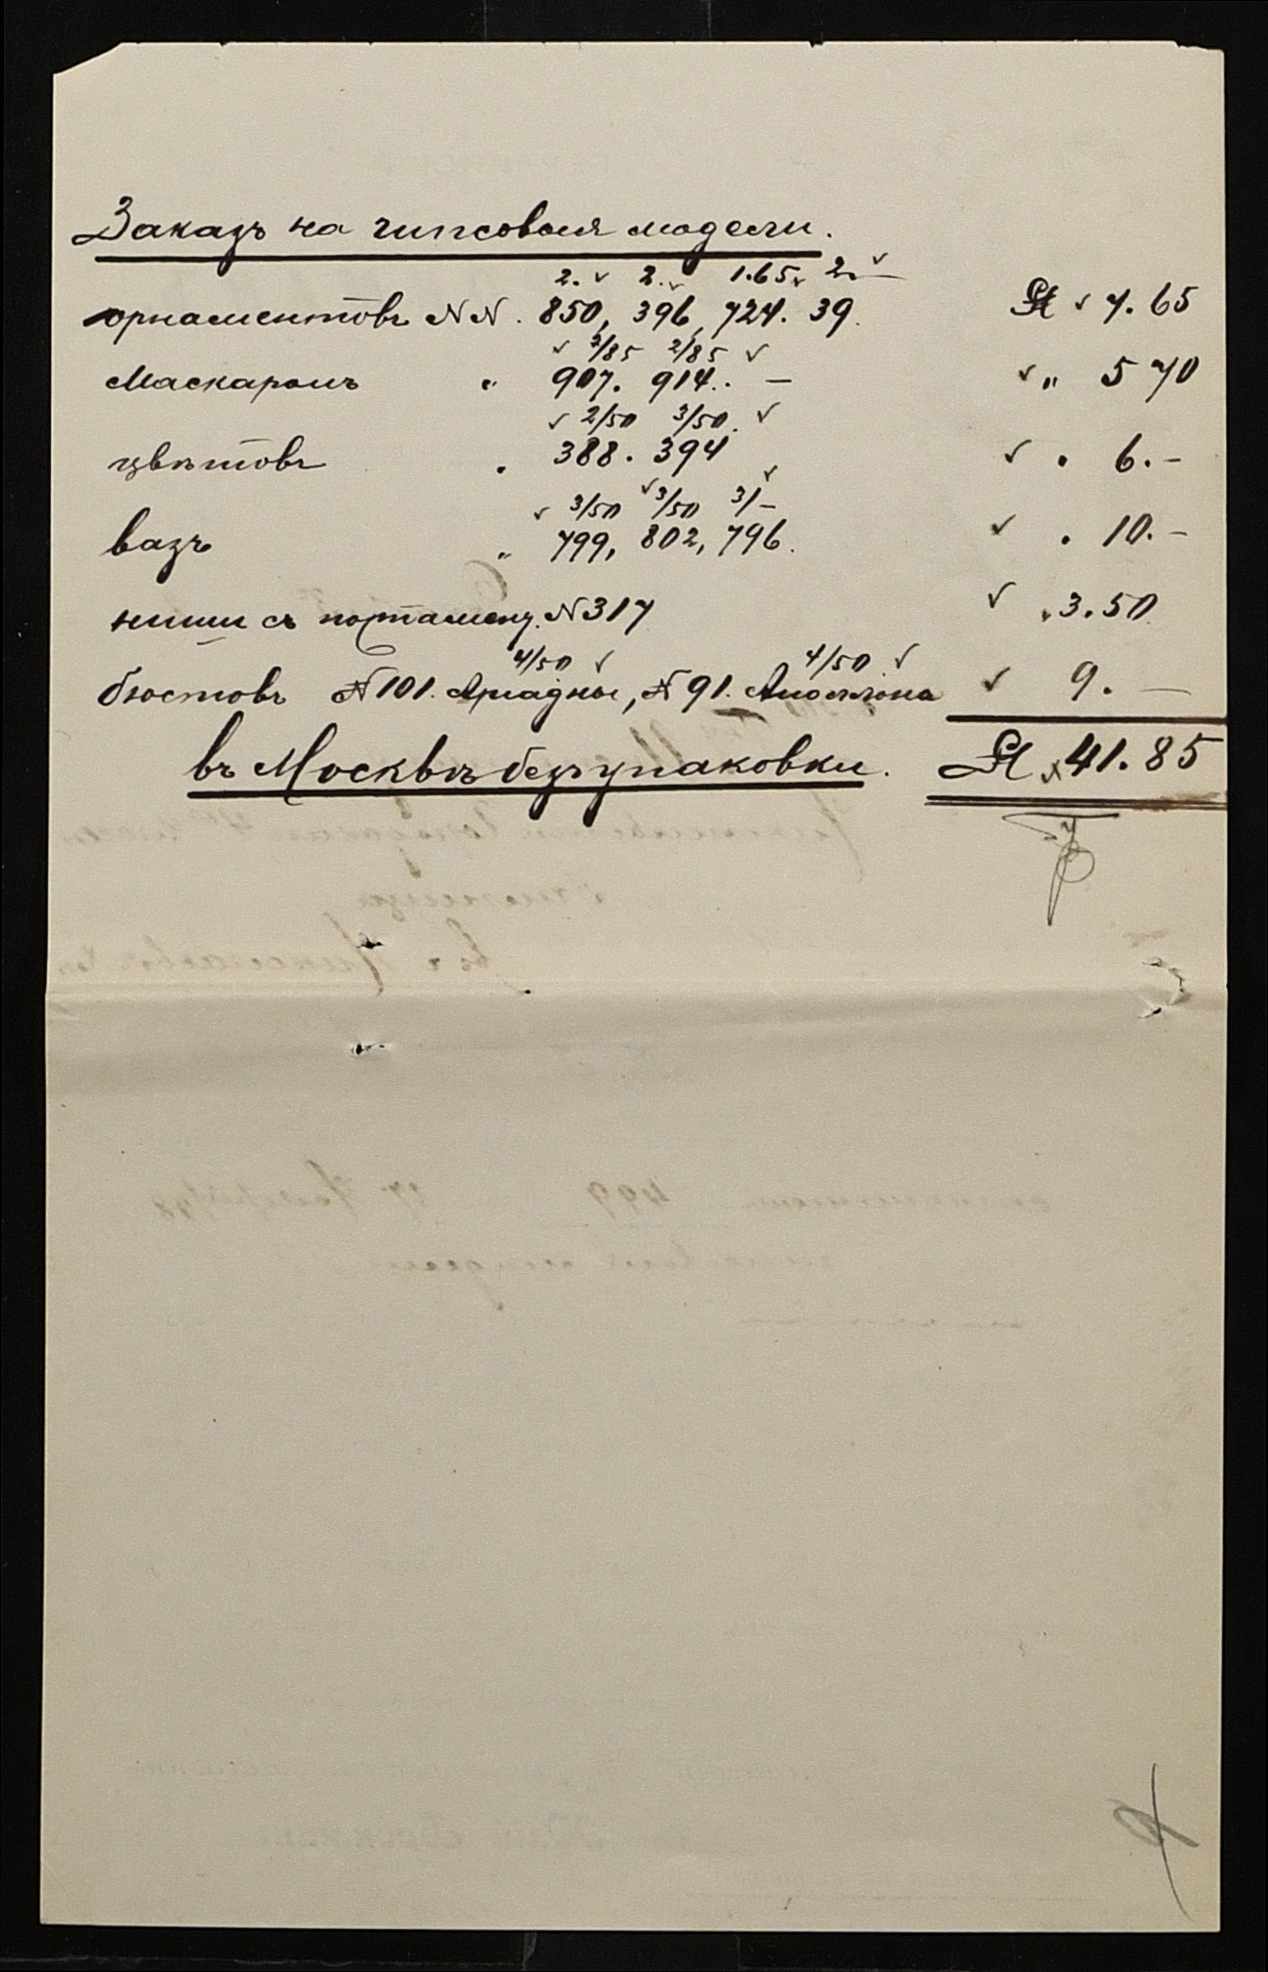 Заказъ на гипсовыя модели.
2. 2. 1.65 2.—
орнаментовъ NN. 850, 396, 724. 39. 7.65
2/85 2/85
Маскаронъ " 907. 914. — " 5 70
2/50 3/50
цвѣтовъ " 388. 394 " 6.-
3/50 3/50 3/-
вазъ " 799, 802, 796. " 10.-
ниши съ N317 " 3.50
4/50 4/50
бюстовъ N101. Аріадны, N91. Аполлона 9.—
въ Москвѣ безъ упаковки. 41.85